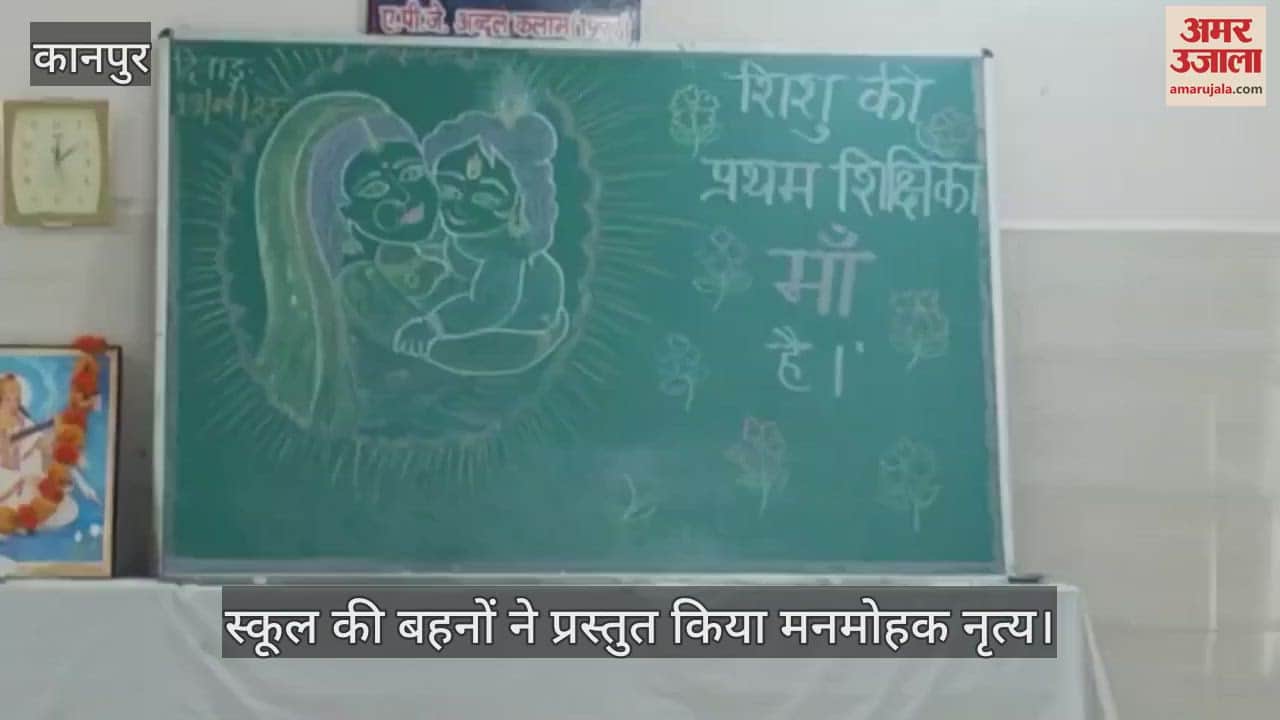 ए.पी.जे. अब्दुल कलाम
कानपुर
अमर
उजाला
amarujala.com
शिशु की
प्रथम शिक्षिका
माँ
है।
स्कूल की बहनों ने प्रस्तुत किया मनमोहक नृत्य।